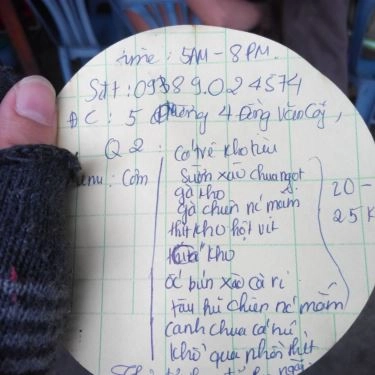 time: 5AM - 8PM.
Sđt: 09389.024574
ĐC: 5 Đường 4
Q2
cá trê kho tiêu
Menu: Cơm
sườn xào chua ngọt
gà kho
20 -
gà chiên nc mắm
25K
thịt kho hột vịt
kho
ốc bún xào cà ri
tàu hủ chiên nc mắm
canh chua cá hú
khổ qua nhồi thịt